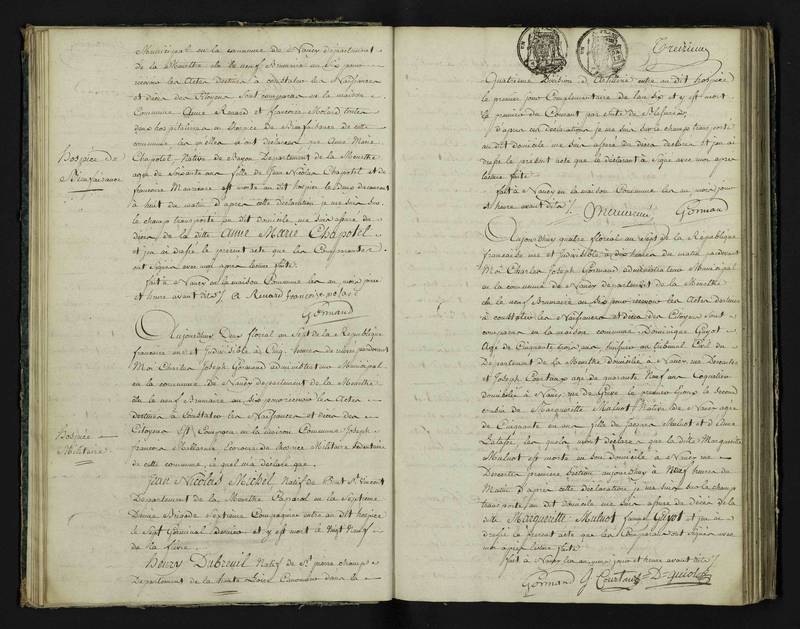 Municipal en la commune de Nancy département
de la Meurthe élu le neuf Brumaire an Six pour
recevoir les Actes destinés à constater les Naissances
et décès des Citoyens sont comparus en la maison
Commune Anne Renard et françoise
hospitalières en hospice de Bienfaisance de cette
commune les m'ont déclarées que Anne Marie
Hospice de
Bienfaisance
Chapotel Native de Bayon Département de la Meurthe
agée de soixante ans fille de Jean Nicolas Chapotel et de
françoise est morte au dit hospice le Deux du courant
à huit du matin d'après cette déclaration je me suis sur
le champ transporté au dit domicile me suis assuré du
décès de la ditte Anne Marie Chapotel
et j'en ai dressé le présent acte que les Comparantes
ont signés avec moi après lecture faite
fait à Nancy en la maison Commune les an mois jour
et heure avant dits A Renard françoise
Gormand
Aujourdhuy Deux floréal an Sept de la République
francoise une et Indivisible à Cinq heures de pardevant
Moi Charles Joseph Gormand administrateur Municipal
en la commune de Nancy département de la Meurthe
élu le neuf Brumaire an Six pour recevoir les Actes
destinés à Constater les Naissances et décès des
Citoyens Est Comparu en la maison Commune Joseph
Hospice
Militaire
francois Econome du hospice Militaire Sédentaire
de cette commune le quel m'a déclaré que
Jean Nicolas Michel Natif de St Vincent
Département de la Meurthe Caporal en la Septième
Demie Brigade Septième Compagnie entré au dit hospice
le Sept Germinal Dernier et y est mort le Vingt Neuf
de la fièvre
Henry Dubreuil Natif de St pierre champ
Département de la haute Loire Canonnier dans la
Quatrième Division d'Artillerie entré au dit hospice
le premier jour Complémentaire de l'an Six et y est mort
le premier du Courant par suite de
d'après ces déclarations je me suis sur le champ transporté
au dit domicile me suis assuré du décès déclaré et j'en ai
dressé le présent acte que le déclarant à Signé avec moi après
lecture faite
fait à Nancy en la maison Commune les an mois jour
et heure avant dits
Gormand
Aujourdhuy quatre floréal an Sept de la République
francoise une et Indivisible à dix heures du matin pardevant
Moi Charles Joseph Gormand administrateur Municipal
en la commune de Nancy département de la Meurthe
élu le neuf Brumaire an Six pour recevoir les Actes destinés
à constater les Naissances et décès des Citoyens sont
comparus en la maison commune Dominique Guyot
Agé de Cinquante trois ans huissier au tribunal Civil du
Département de la Meurthe domicilié à Nancy rue
et Joseph Courtaux agé de quarante Neuf ans
domicilié à Nancy rue de Grève le premier Epoux le Second
cousin de Marguerite Muluot Native de Nancy agée
de Cinquante en ans fille de Muluot et d'Anne
les quels m'ont déclaré que la ditte Marguerite
Muluot est morte en son domicile à Nancy rue
première Section aujourdhuy à Neuf heures du
Matin d'après cette déclaration je me suis sur le champ
transporté au dit domicile me suis assuré du décès de la
ditte Marguerite Muluot femme Guyot et j'en ai
dressé le présent acte que les Comparants ont Signés avec
moi après lecture faite
fait à Nancy les an mois jour et heure avant dits
Gormand J Courtaux D guiot